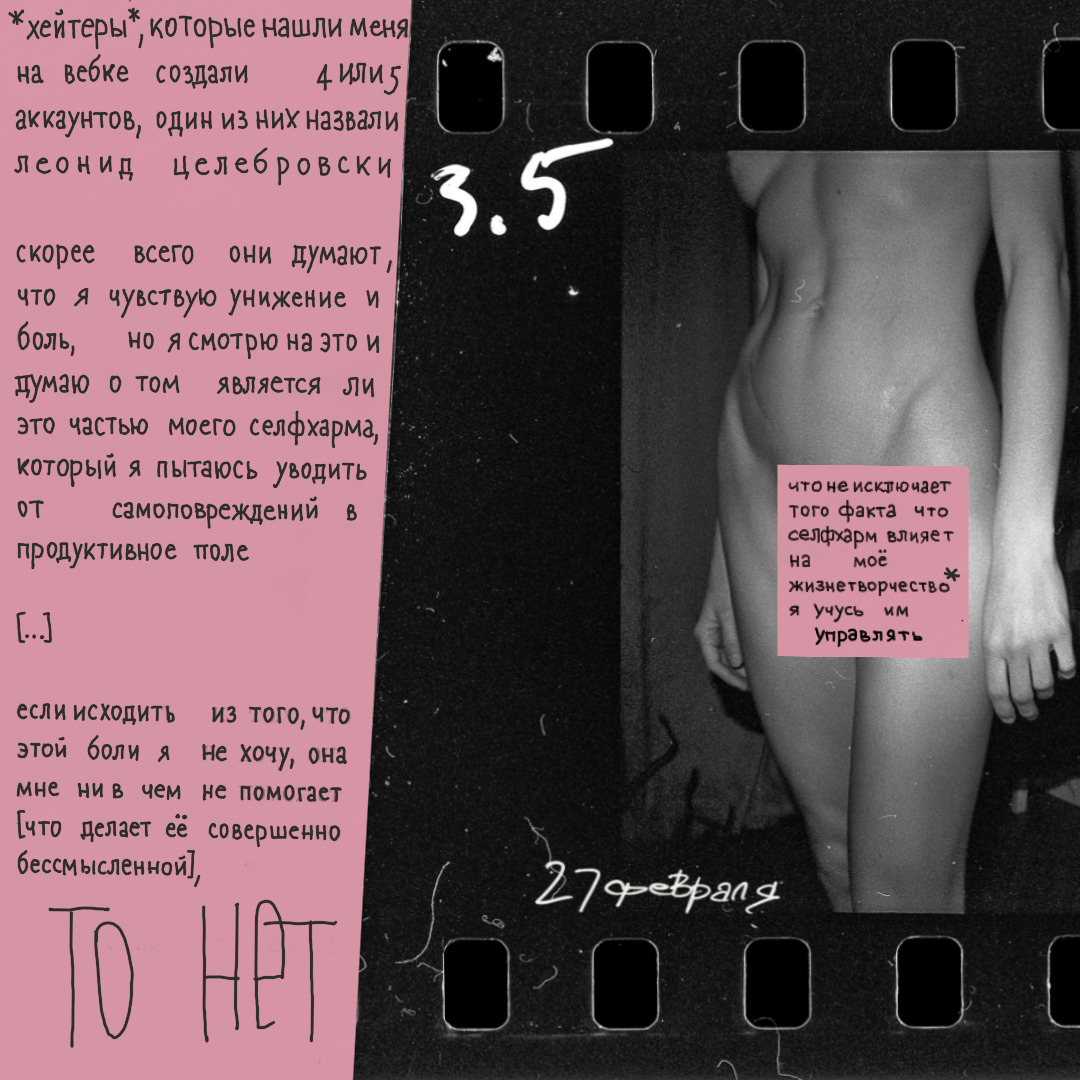 *хейтеры*, которые нашли меня
на вебке создали 4 или 5
аккаунтов, один из них назвали
леонид целебровски
скорее всего они думают,
что я чувствую унижение и
боль, но я смотрю на это и
думаю о том является ли
это частью моего селфхарма,
который я пытаюсь уводить
от самоповреждений в
продуктивное поле
[...]
если исходить из того, что
этой боли я не хочу, она
мне ни в чем не помогает
[что делает её совершенно
бессмысленной],
то нет
3.5
что не исключает
того факта что
селфхарм влияет
на моё
жизнетворчество*
я учусь им
управлять
27 февраля